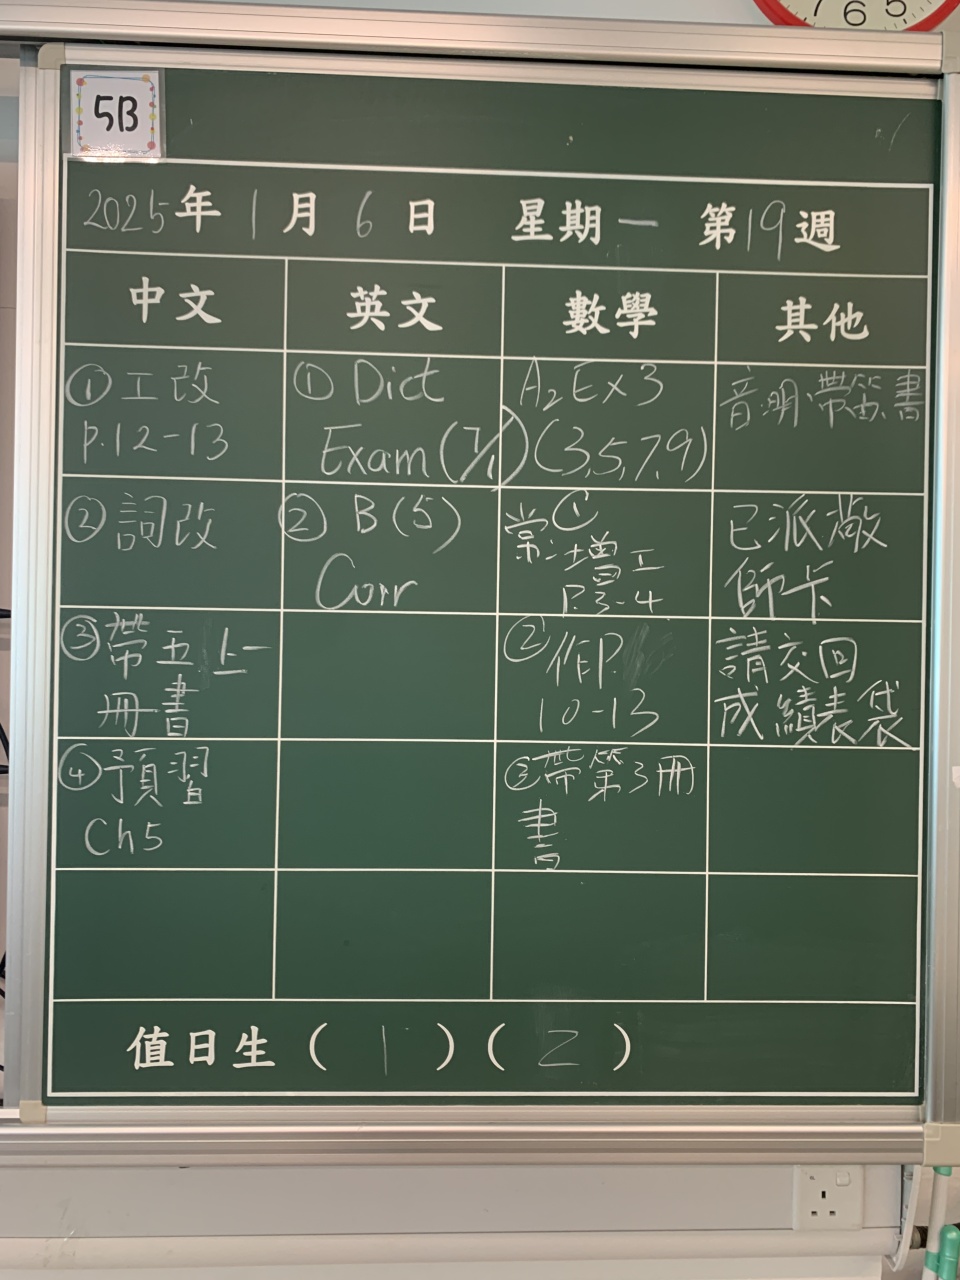 7 6 5
5B
2025年 1月 6日 星期一 第19週
中文 英文 數學 其他
①工改
P.12-13
①Dict
Exam (7/1)
A2Ex3
(3,5,7,9)
音:明帶笛、書
②詞改
②B(5)
Corr
常:①增工
P.3-4
已派敬
師卡
③帶五上一
冊書
②作P.
10-13
請交回
成績表袋
④預習
Ch5
③帶第3冊
書
值日生（1）（2）